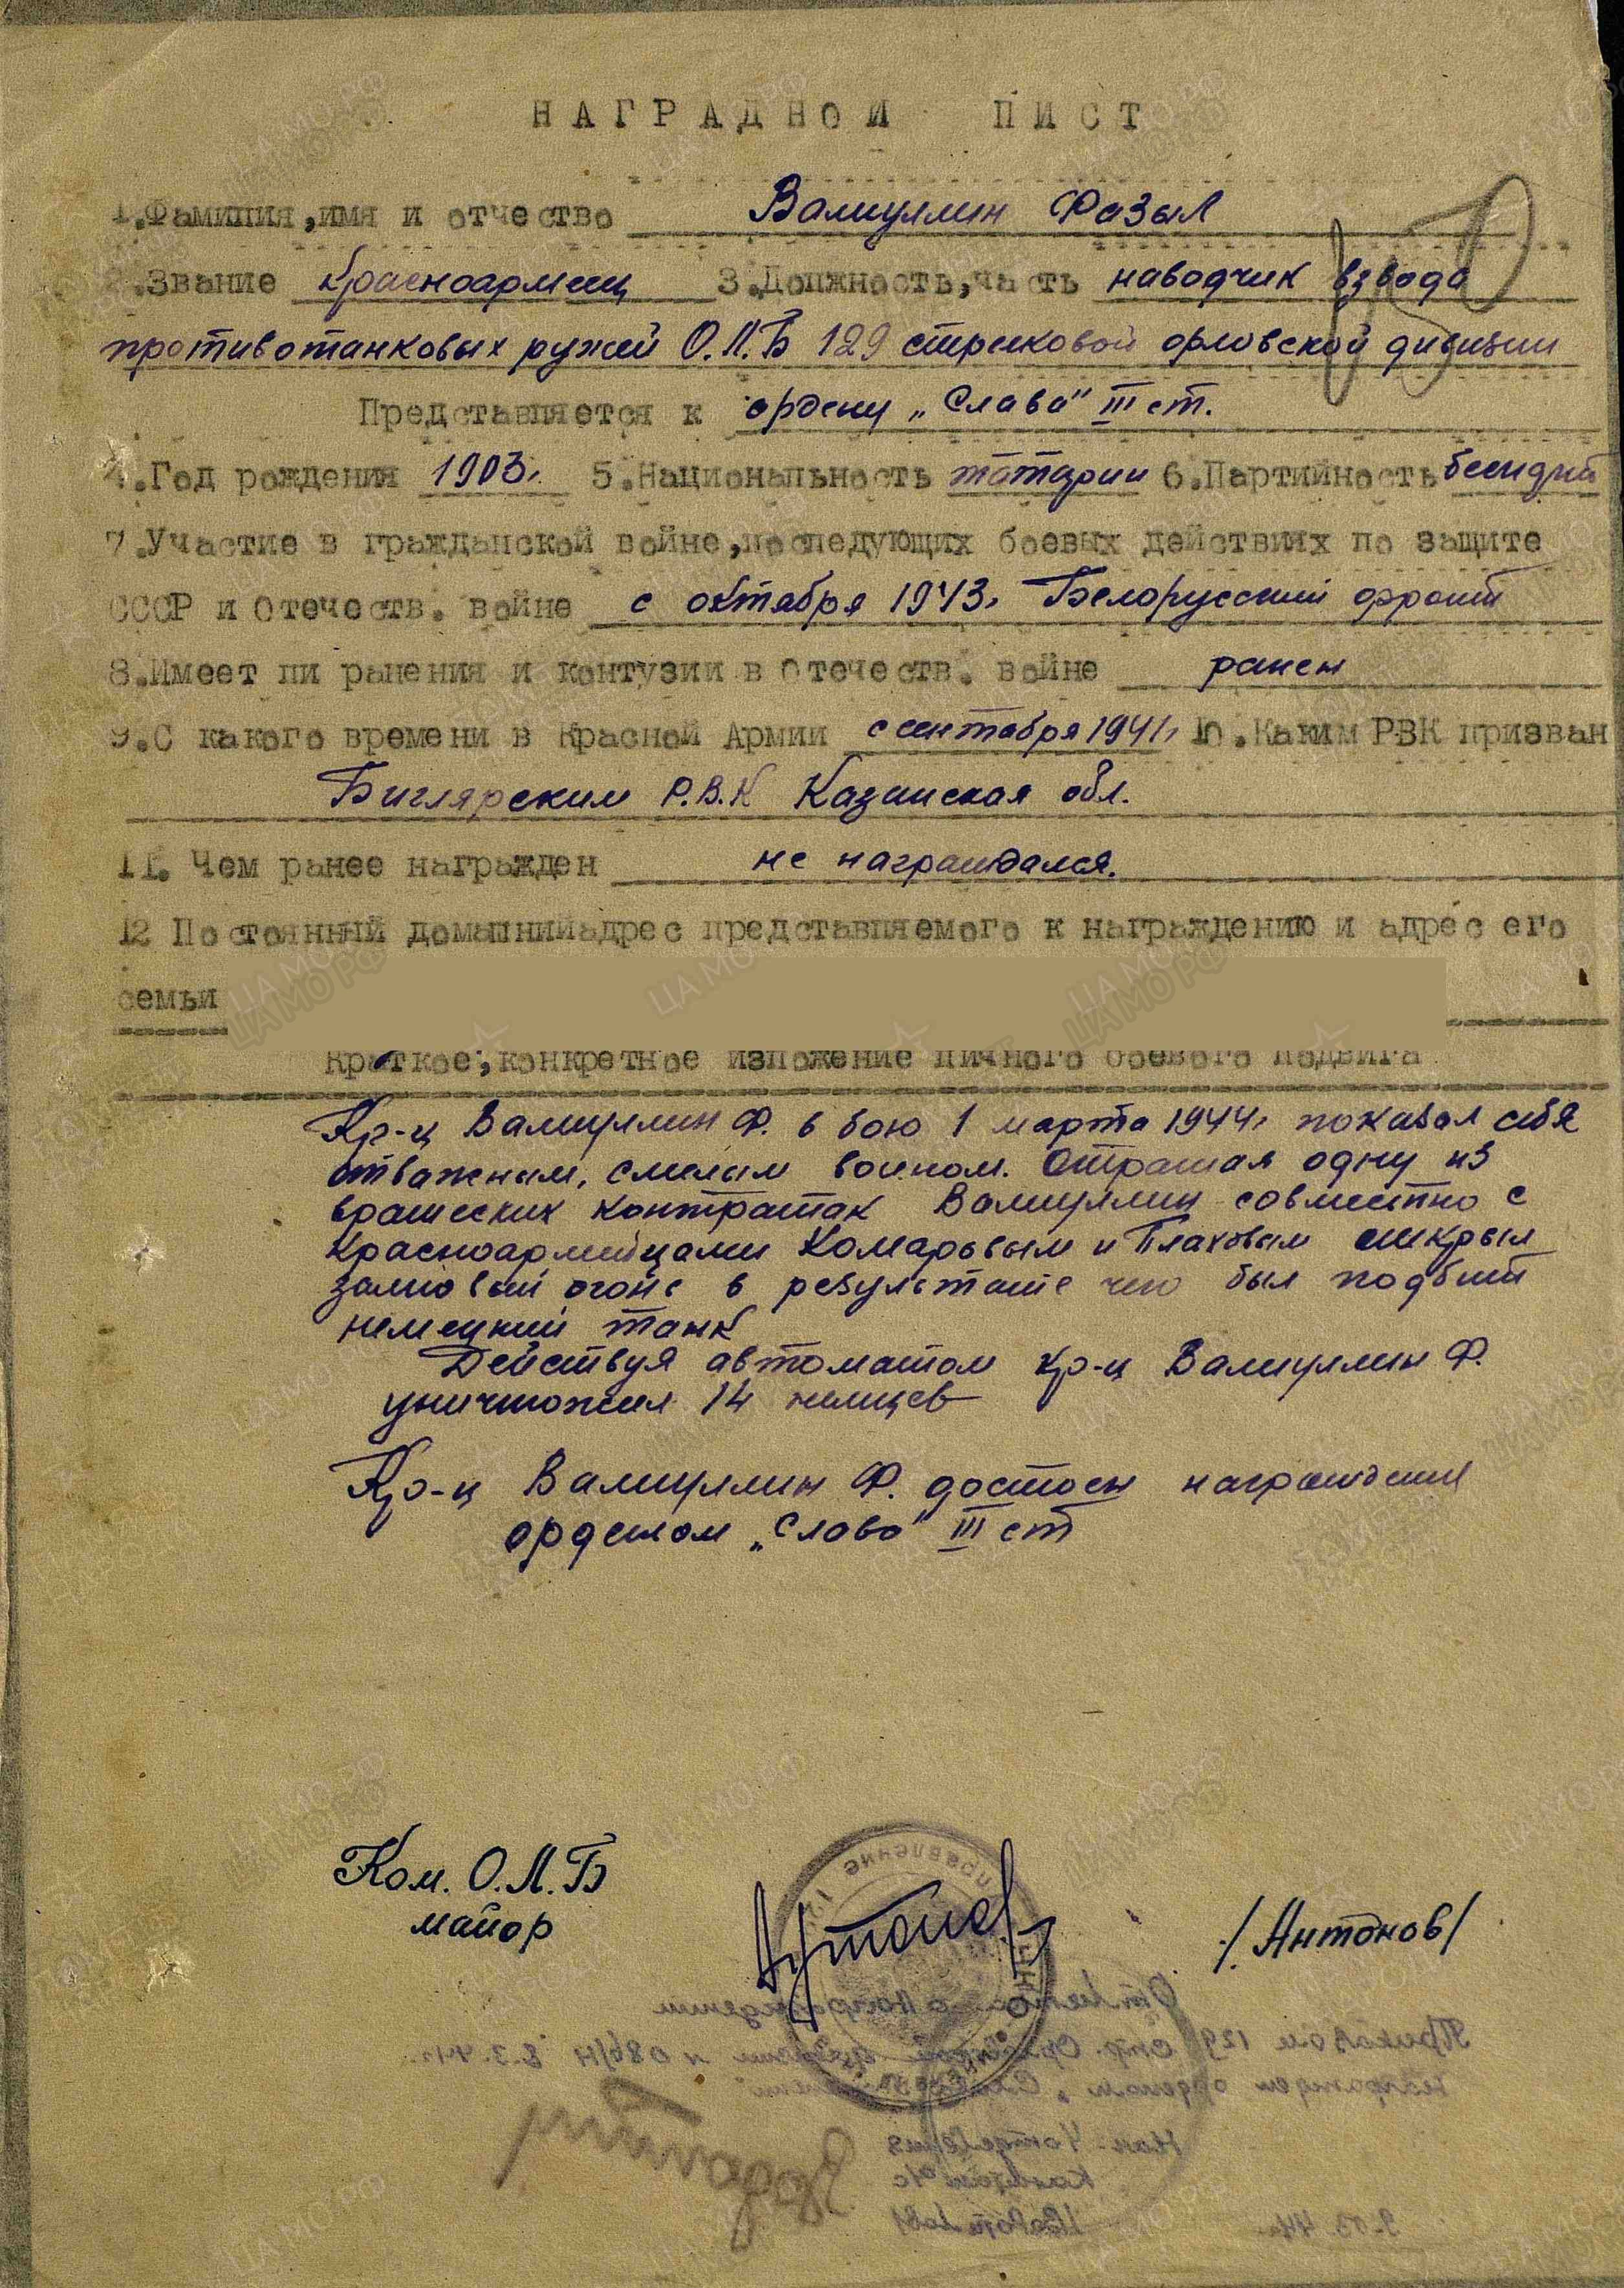 НАГРАДНОЙ ЛИСТ
1.Фамилия,имя и отчество Валиуллин Фазыл
2.Звание красноармеец 3.Должность,часть наводчик взвода
противотанковых ружей О.Л.Б 129 стрелковой орловской дивизии
Представляется к ордену „Слава" III ст.
4.Год рождения 1903г. 5.Национальность татарин 6.Партийность
7.Участие в гражданской войне,последующих боевых действиях по защите
СССР и Отечеств. войне с октября 1943г Белорусский фронт
8.Имеет ли ранения и контузии в Отечеств. войне ранен
9.С какого времени в Красной Армии с сентября 1941г 10.Каким РВК призван
Биглярским Р.В.К Казанская обл.
11. Чем ранее награжден не награждался.
12 Постоянный домашнийадрес представляемого к награждению и адрес его
семьи
Краткое,конкретное изложение личного боевого подвига
Кр-ц Валиуллин Ф. в бою 1 марта 1944г показал себя
отважным, смелым воином. Отражая одну из
вражеских контратак Валиуллин совместно с
красноармейцами Комаровым и Плаховым открыл
залповый огонь в результате чего был подбит
немецкий танк
Действуя автоматом кр-ц Валиуллин Ф.
уничтожил 14 немцев
Кр-ц Валиуллин Ф. достоен награждения
орденом „Слава" III ст
Ком. О.Л.Б
майор Антонов /Антонов/